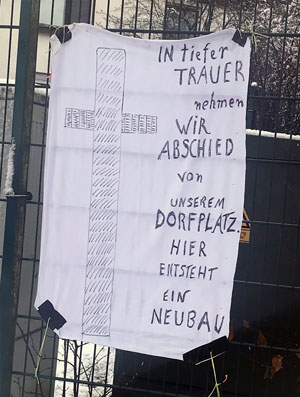 IN tiefer
TRAUER
nehmen
WIR
ABSCHIED
von
UNSEREM
DORFPLATZ.
HIER
ENTSTEHT
EIN
NEUBAU